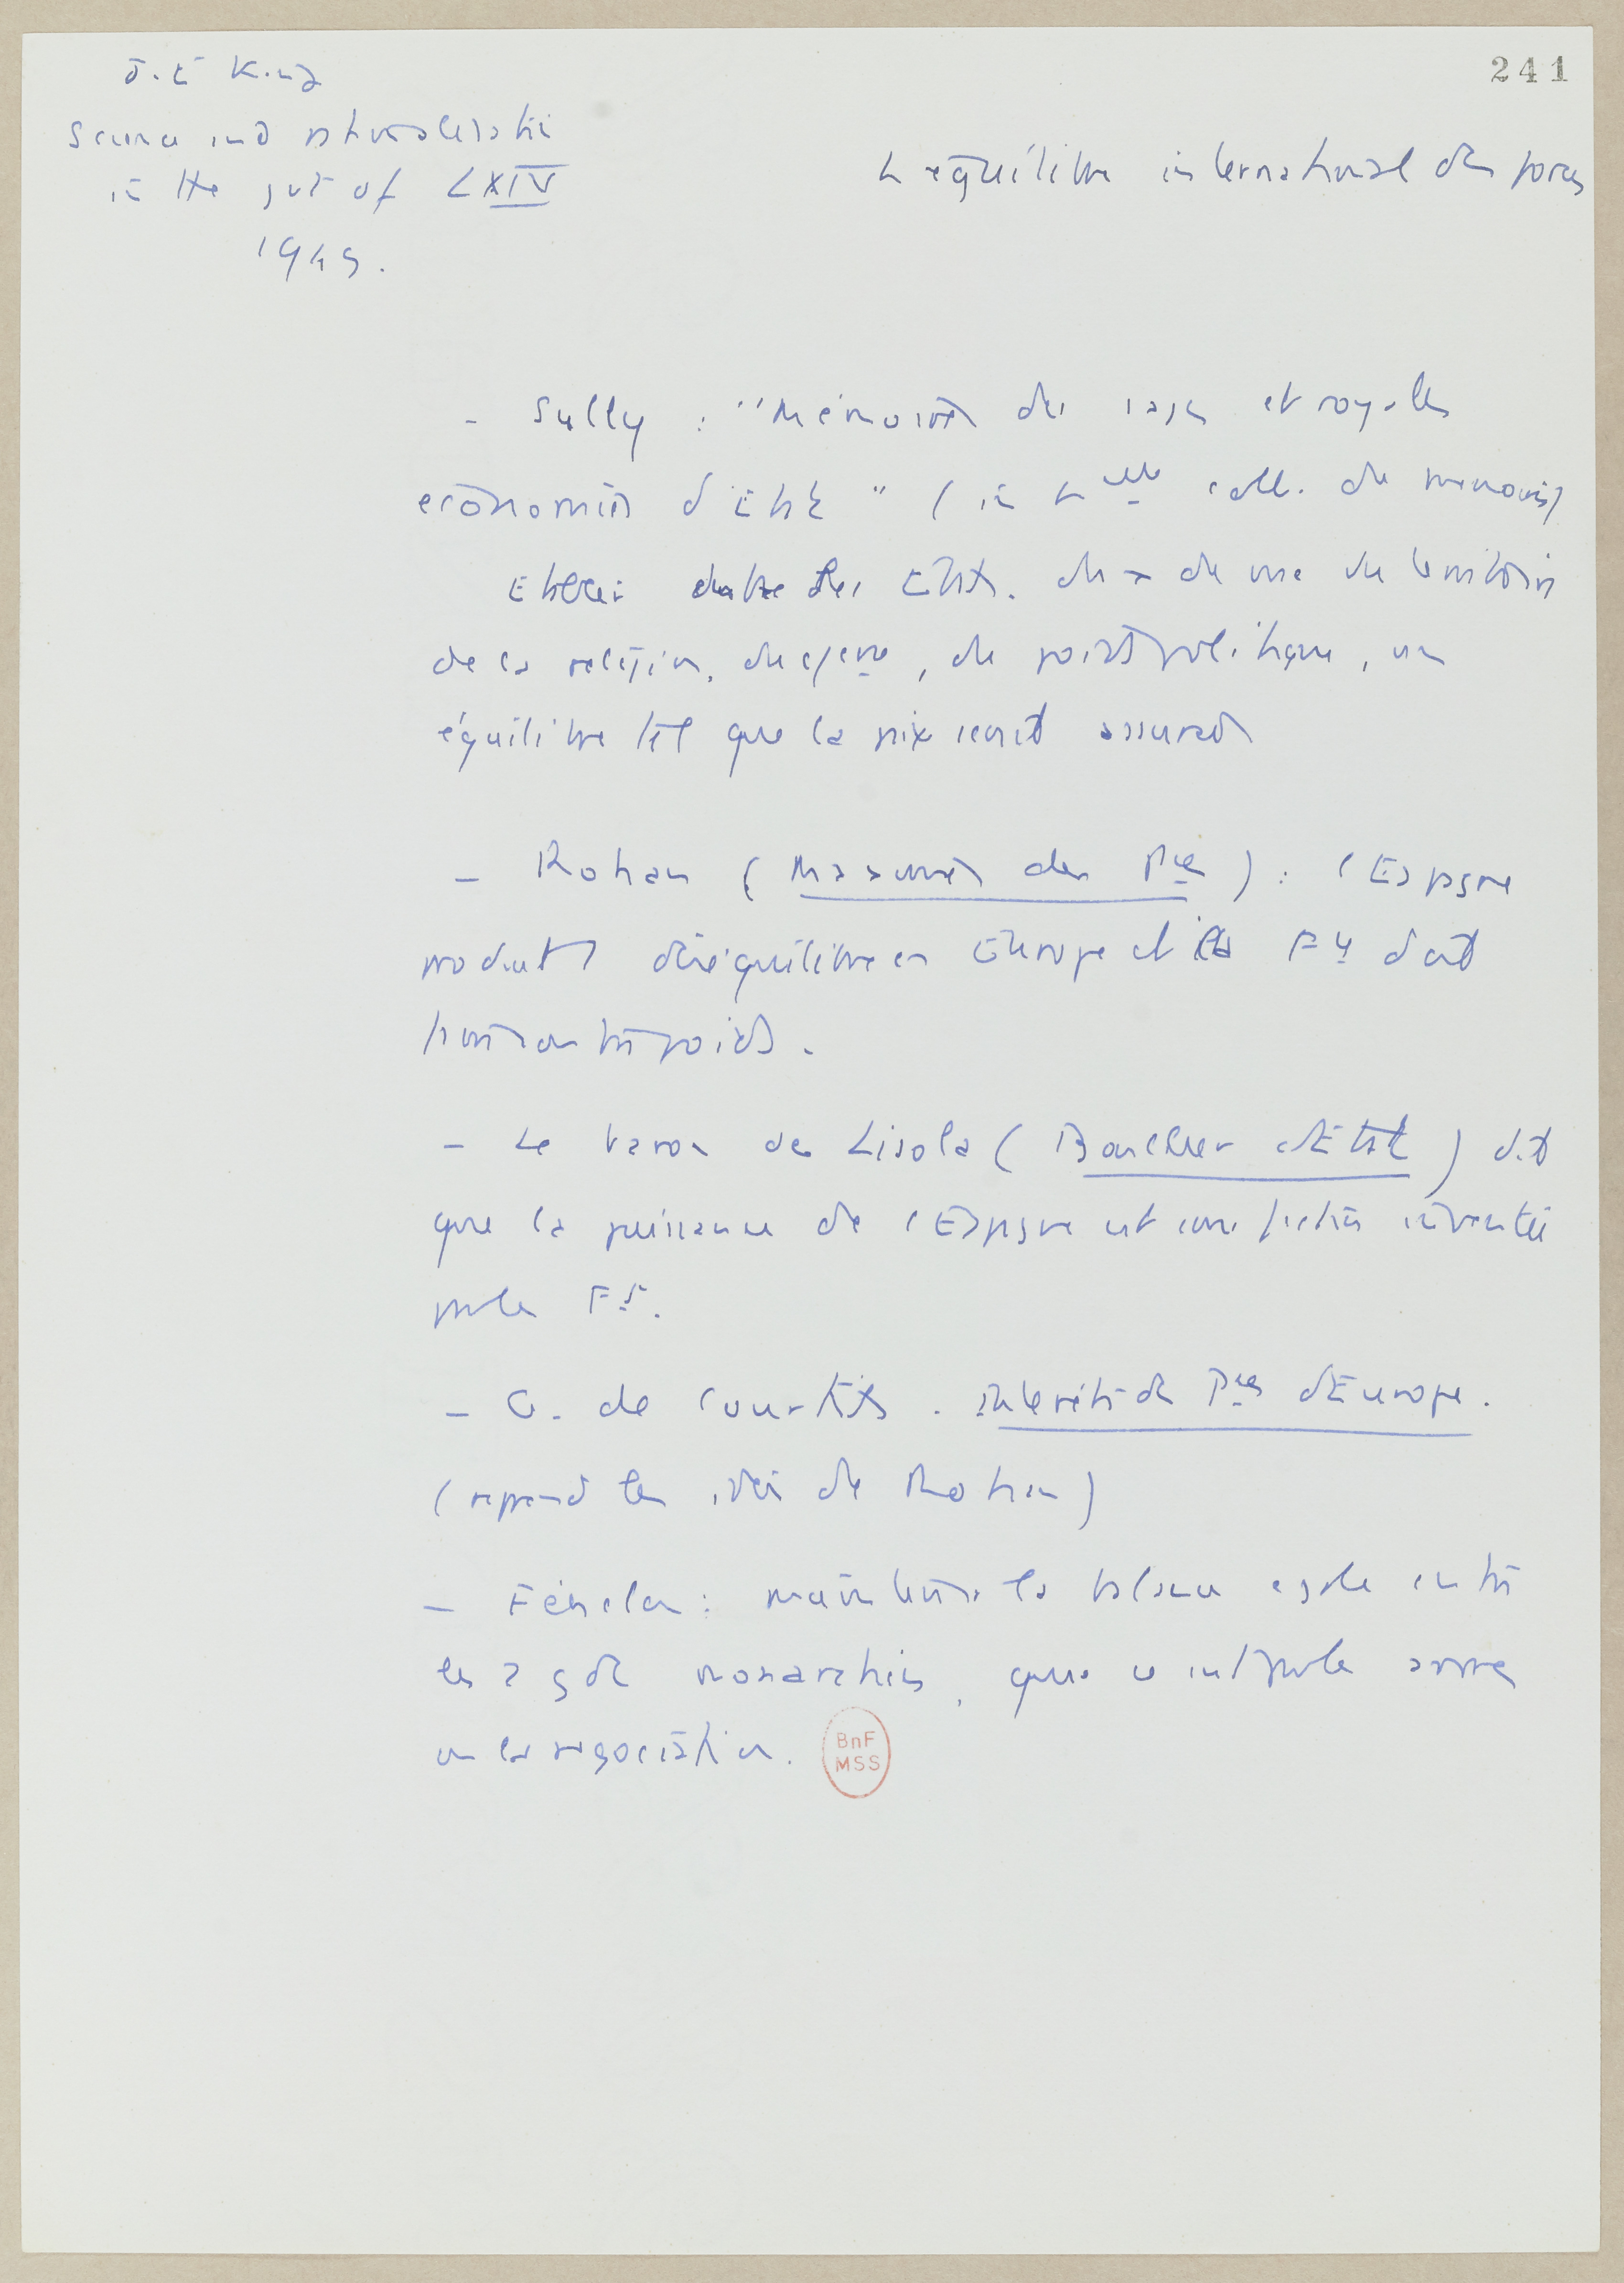 241
J.E King
Science and rationalism
in the gvt of LXIV
1949.
L'équilibre international des forces
- Sully : "Mémoires des sages et royales
économies d'Etat" (in Lle coll. des mémoires)
Etablir entre les Etats. du de vue du territoire
de la religion, du genre, du poids politique, un
équilibre tel que la paix serait assurée
- Rohan (Maximes des Pces) : l'Espagne
produit déséquilibre en Europe et la Fce doit
faire contrepoids.
- Le baron de Lisola (Bouclier d'Etat) dit
que la puissance de l'Espagne est une fiction inventée
par les Fs.
- G. de Courtilz. Intérêts des Pces d'Europe.
(reprend les idées de Rohan)
- Fénelon : maintenir la balance égale entre
les 2 gdes monarchies, que ce soit par les armes
ou la négociation.
BnF
MSS